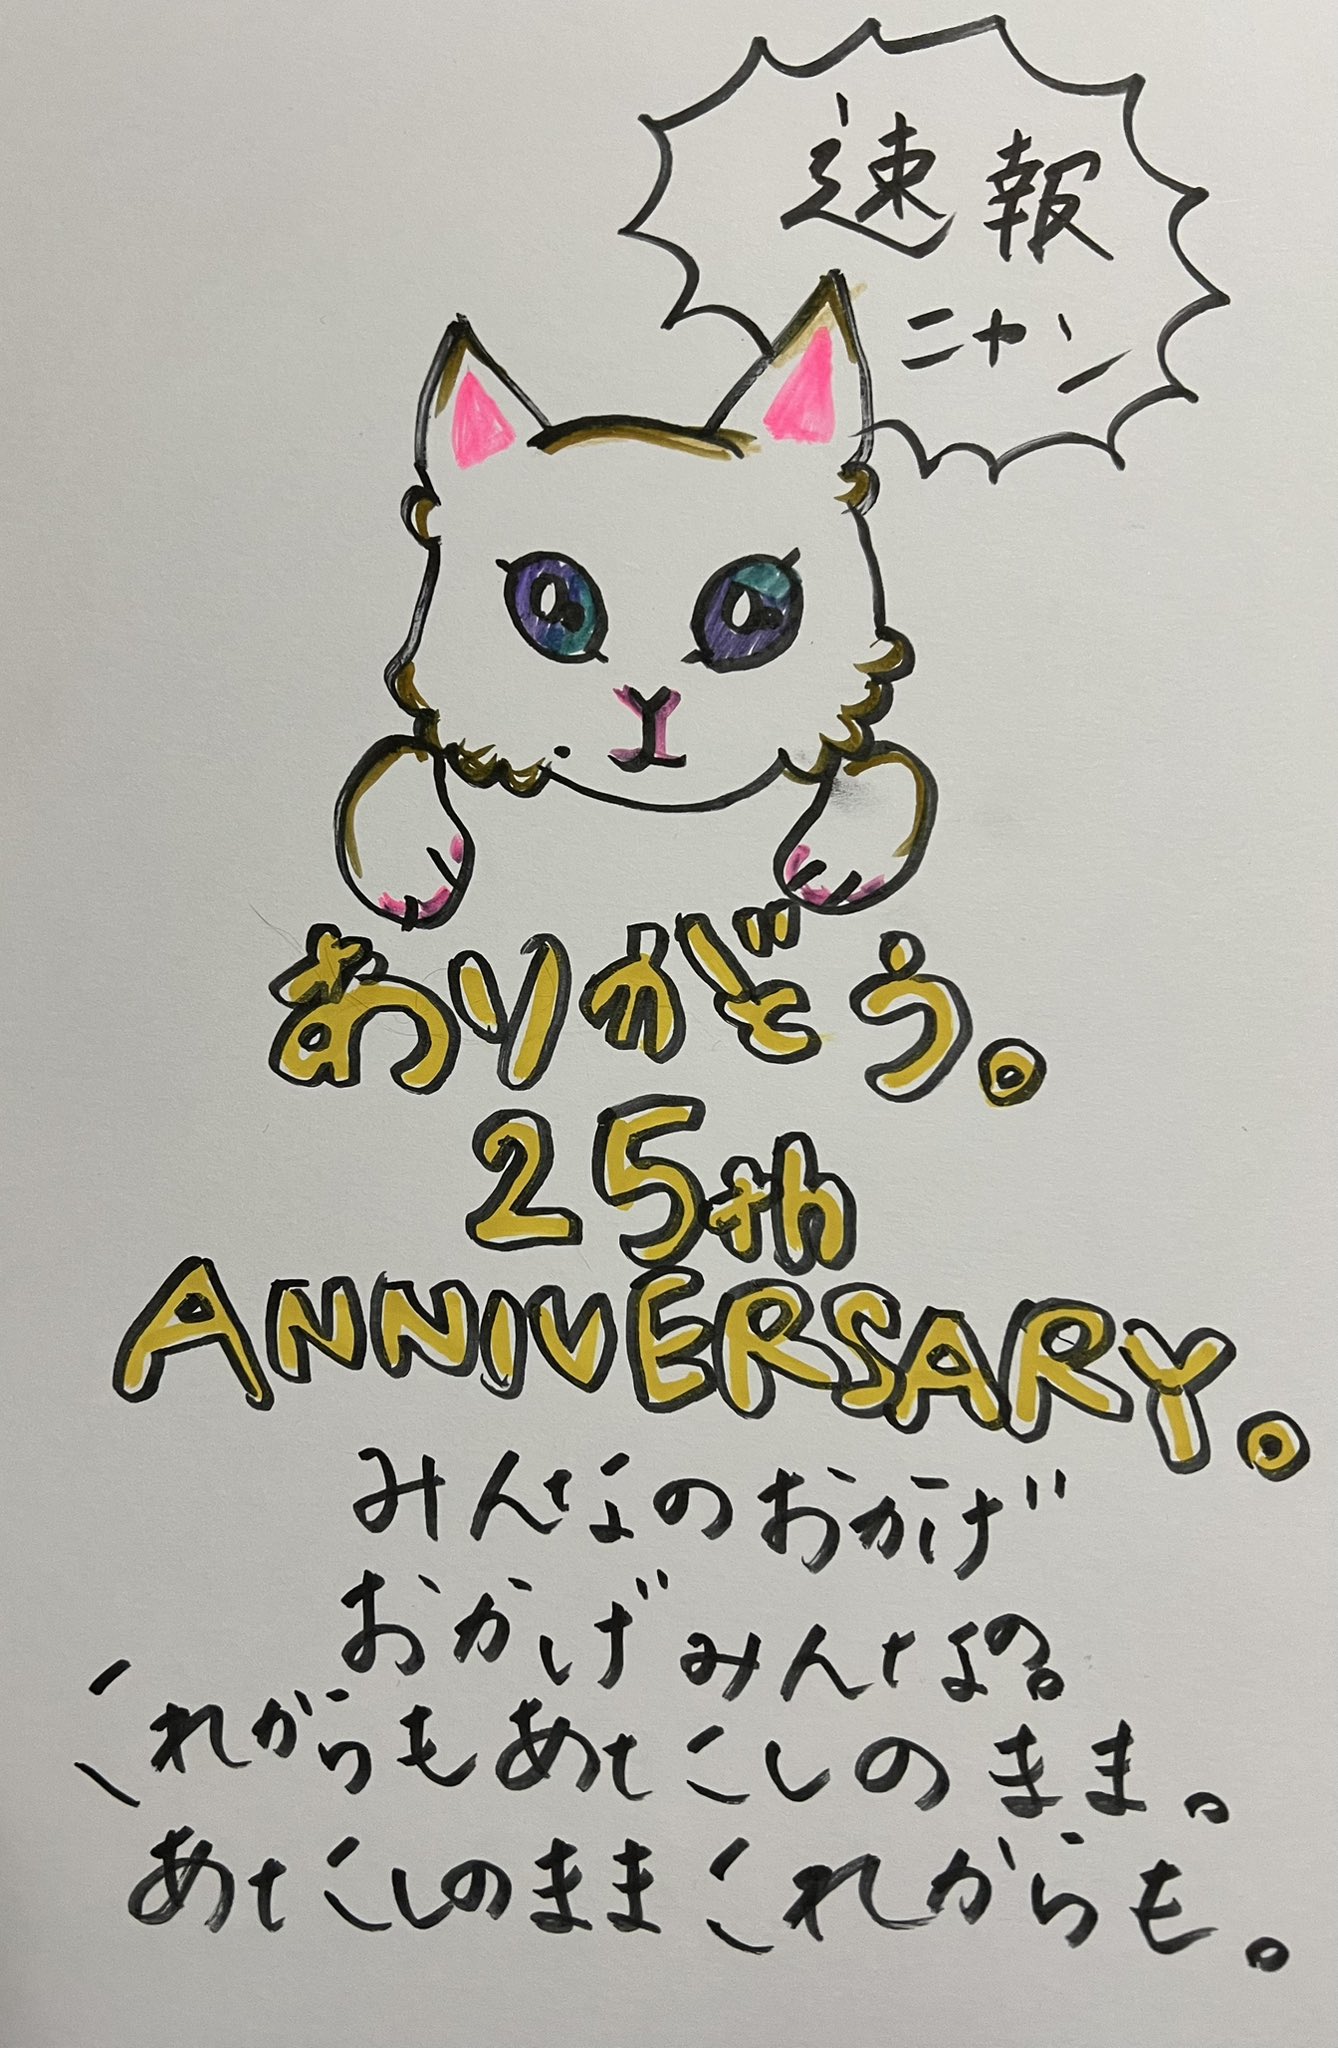 速報
ニャン
ありがとう。
25th
ANNIVERSARY.
みんなのおかげ
おかげみんなの。
これからもあせこしのまま。
あせこしのままこれからも。